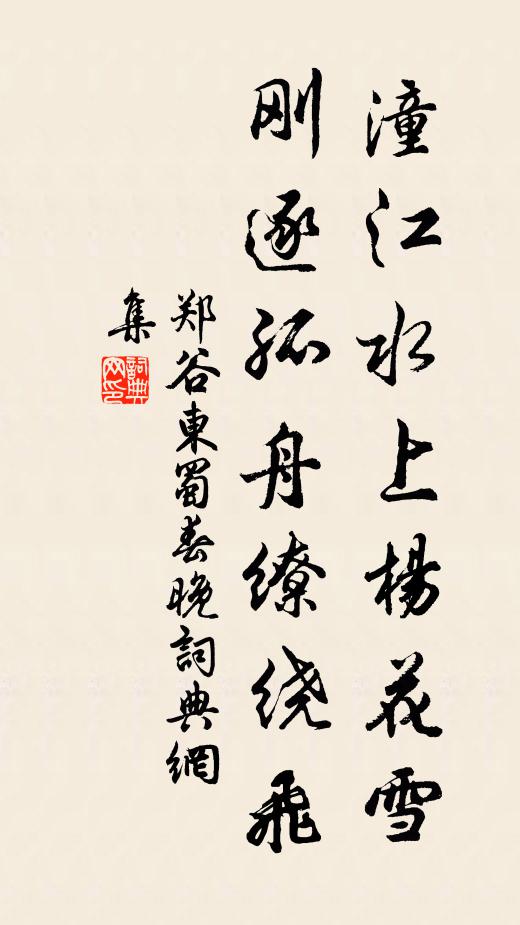 潼江水上楊花雪
刚逐孤舟繚绕飛
郑谷東蜀春晚詞典網
集
詞典网印